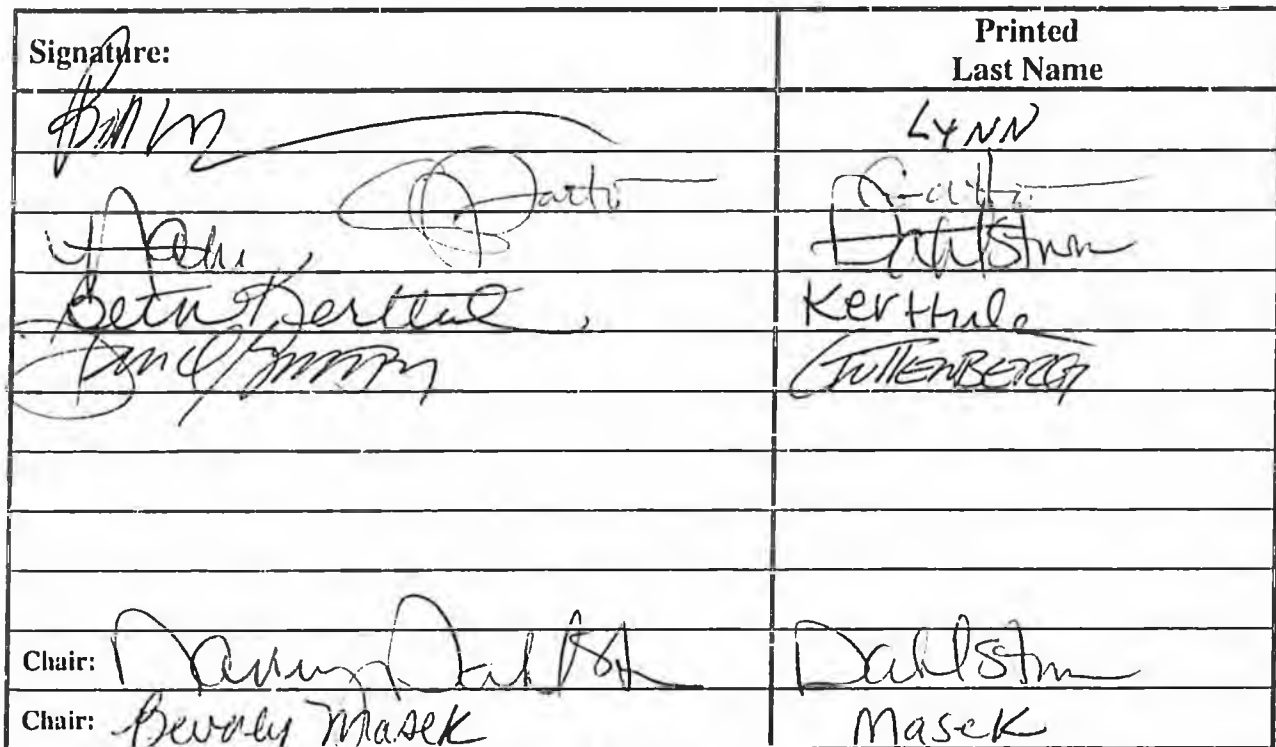 Signature: Printed
Last Name
Bill LYNN
Gatto Gatto
Dahlstrom
Beth Kerttula Kerttula
GUTTENBERG
Chair: Nancy Dahlstrom Dahlstrom
Chair: Beverly Masek Masek